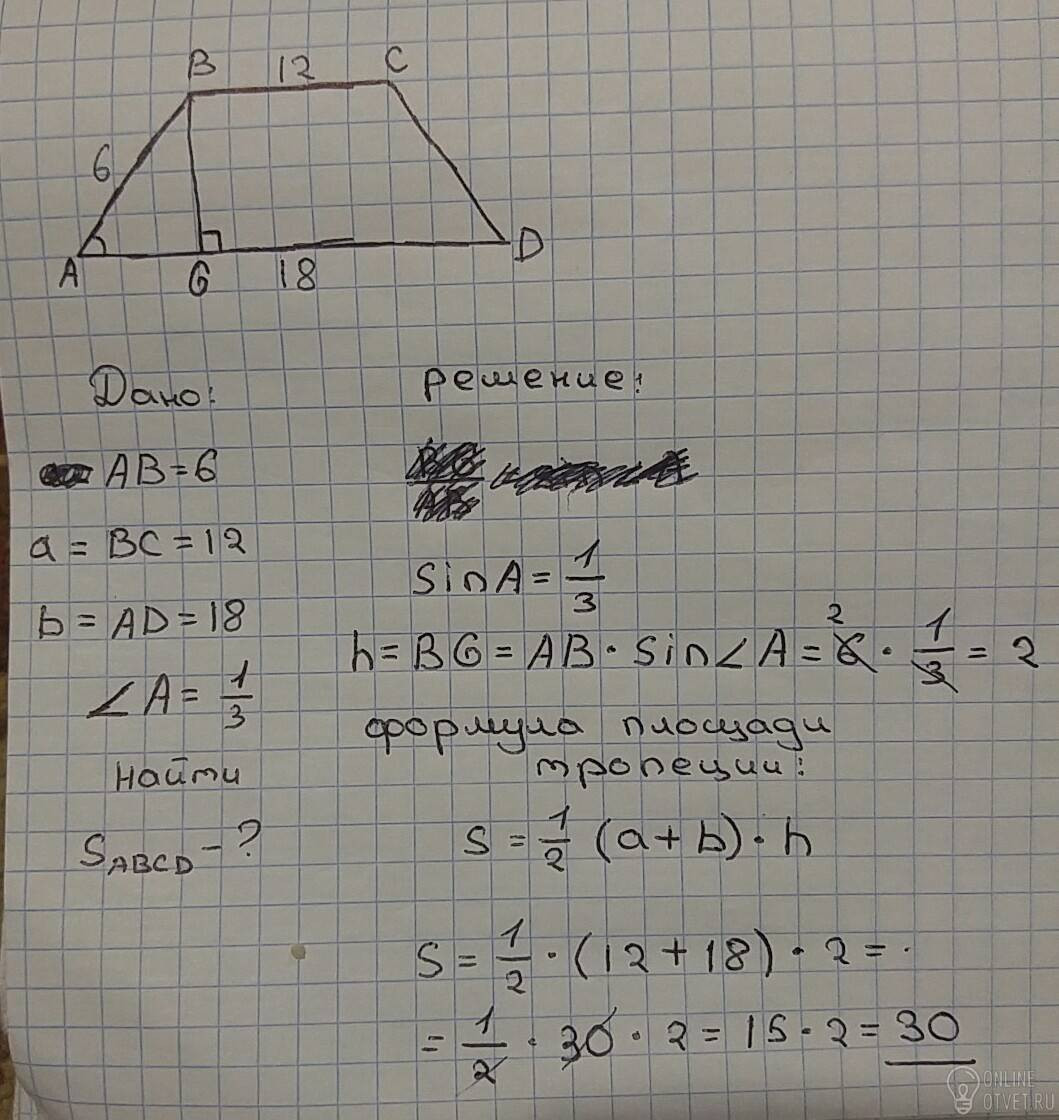 B 12 C
6
A G 18 D
Дано:
AB=6
a = BC = 12
b = AD = 18
∠A = 1/3
найти
S ABCD - ?
решение:
sin A = 1/3
h = BG = AB · sin∠A = 6 2 · 1/3 = 2
формула площади
тропеции:
S = 1/2 (a + b) · h
S = 1/2 · (12 + 18) · 2 = ·
= 1/2 · 30 · 2 = 15 · 2 = 30
ONLINE
OTVET.RU